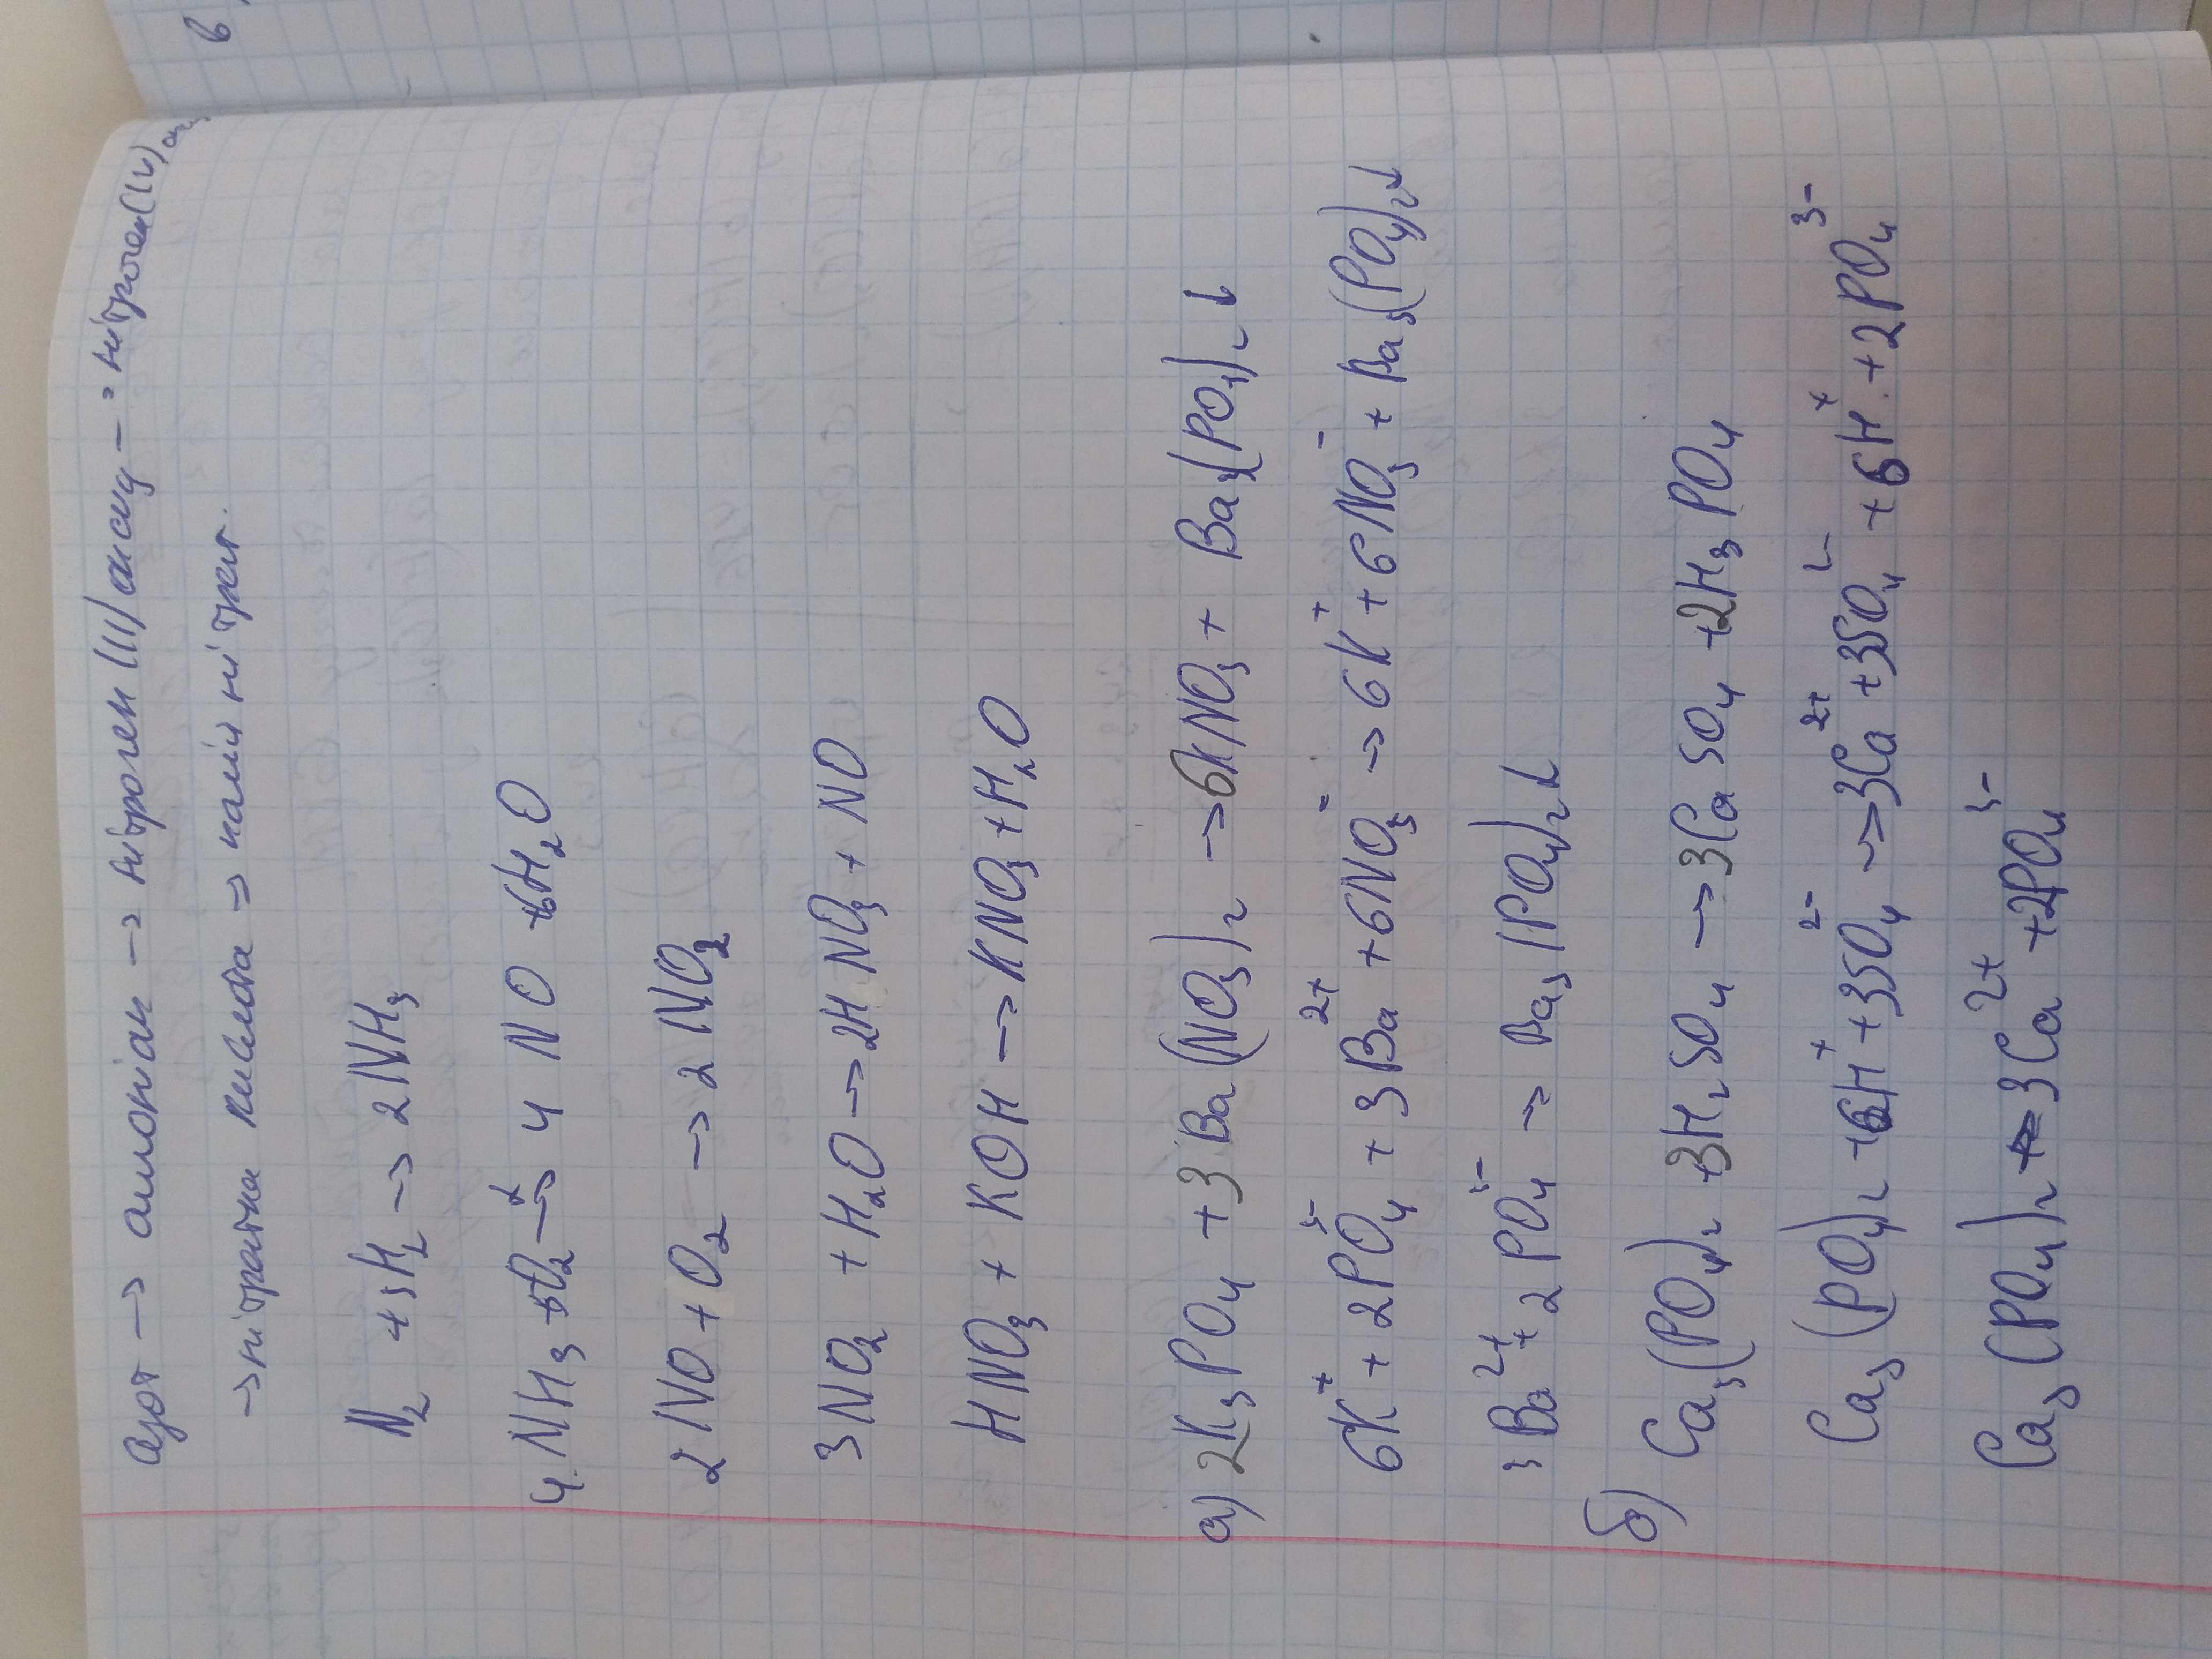 Азот → амоніак → нітроген (II) оксид → нітроген (IV)
→ нітратна кислота → калій нітрат.
N₂ + 3H₂ → 2NH₃
4NH₃ + 5O₂ → 4NO + 6H₂O
2NO + O₂ → 2NO₂
3NO₂ + H₂O → 2HNO₃ + NO
HNO₃ + KOH → KNO₃ + H₂O
а) 2K₃PO₄ + 3Ba(NO₃)₂ → 6KNO₃ + Ba₃(PO₄)₂↓
6K⁺ + 2PO₄³⁻ + 3Ba²⁺ + 6NO₃⁻ → 6K⁺ + 6NO₃⁻ + Ba₃(PO₄)₂↓
3Ba²⁺ + 2PO₄³⁻ → Ba₃(PO₄)₂↓
б) Ca₃(PO₄)₂ + 3H₂SO₄ → 3CaSO₄ + 2H₃PO₄
Ca₃(PO₄)₂ + 6H⁺ + 3SO₄²⁻ → 3Ca²⁺ + 3SO₄²⁻ + 6H⁺ + 2PO₄³⁻
Ca₃(PO₄)₂ → 3Ca²⁺ + 2PO₄³⁻